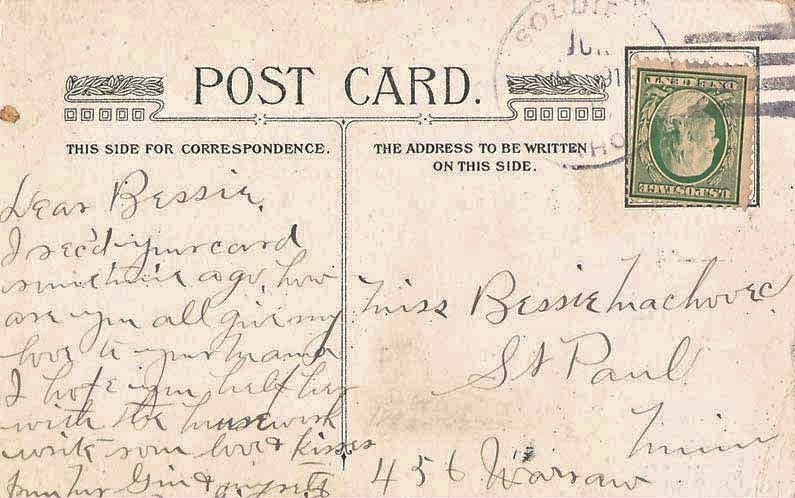 SOLDIE
JU
191
HO
ONE CENT
U.S. POSTAGE
POST CARD.
THIS SIDE FOR CORRESPONDENCE.
THE ADDRESS TO BE WRITTEN
ON THIS SIDE.
Dear Bessie,
I rec'd your card
sometime ago, how
are you all give my
love to your mama
I hope you help her
with the housework
write soon love & kisses
from &  myself
Miss Bessie Machovec
St Paul
Minn
456 Warsaw